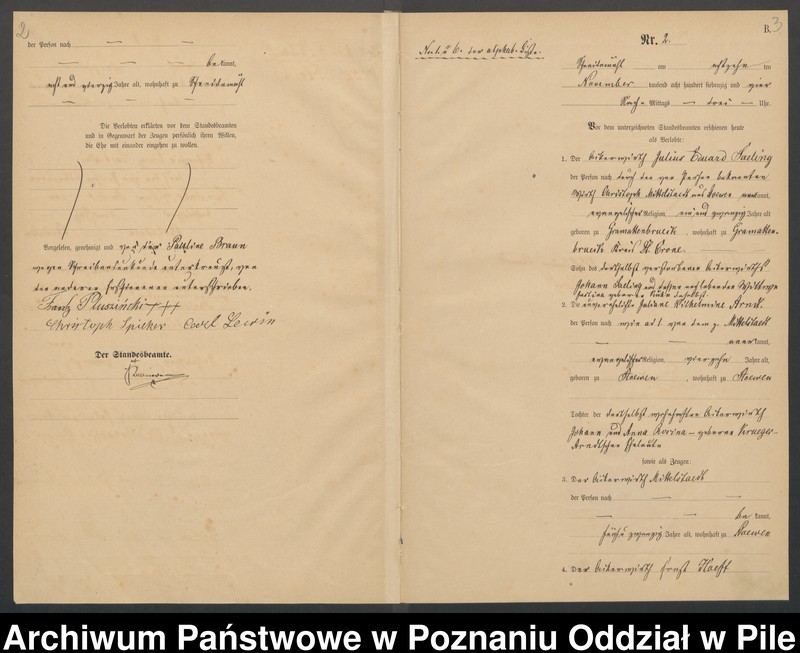 2
der Person nach — —
— — — bekannt,
acht und vierzig Jahre alt, wohnhaft zu Schneidemühl
— — —
Die Verlobten erklärten vor dem Standesbeamten
und in Gegenwart der Zeugen persönlich ihren Willen,
die Ehe mit einander eingehen zu wollen.
Vorgelesen, genehmigt und von der Pauline Braun
wegen Schreibensunkunde unterkreuzt, von
den anderen Erschienenen unterschrieben.
Frantz Pluszinski +++
Christoph Spicker Carl Lewin
Der Standesbeamte.
B. 3
Nr. 2.
Schneidemühl am achtzehn ten
November tausend acht hundert siebenzig und vier
Nach-Mittags — drei — Uhr.
Vor dem unterzeichneten Standesbeamten erschienen heute
als Verlobte:
1. Der Ackerwirth Julius Eduard
der Person nach durch den von Person bekannten
Wirth Christoph Mittelstaedt aus Stoewen anerkannt,
evangelischer Religion, ein und zwanzig Jahre alt
geboren zu Gramattenbrueck, wohnhaft zu Gramatten-
brueck Kreis Dt. Crone.
Sohn des daselbst verstorbenen Ackerwirths
Johann und dessen nachlebender Wittwe
2. Die unverehelichte Juliane Wilhelmine Arndt.
der Person nach wie ad 1 von dem p. Mittelstaedt
— — anerkannt,
evangelischer Religion, vierzehn Jahre alt,
geboren zu Stoewen, wohnhaft zu Stoewen
Tochter der daselbst wohnhaften Ackerwirth
Johann und Anna — geborene Krueger-
Arndtschen Eheleute
sowie als Zeugen:
3. Der Ackerwirth Mittelstaedt
der Person nach — —
— — bekannt,
zwanzig Jahre alt, wohnhaft zu Stoewen
4. Der Ackerwirth Ernst
Archiwum Państwowe w Poznaniu Oddział w Pile